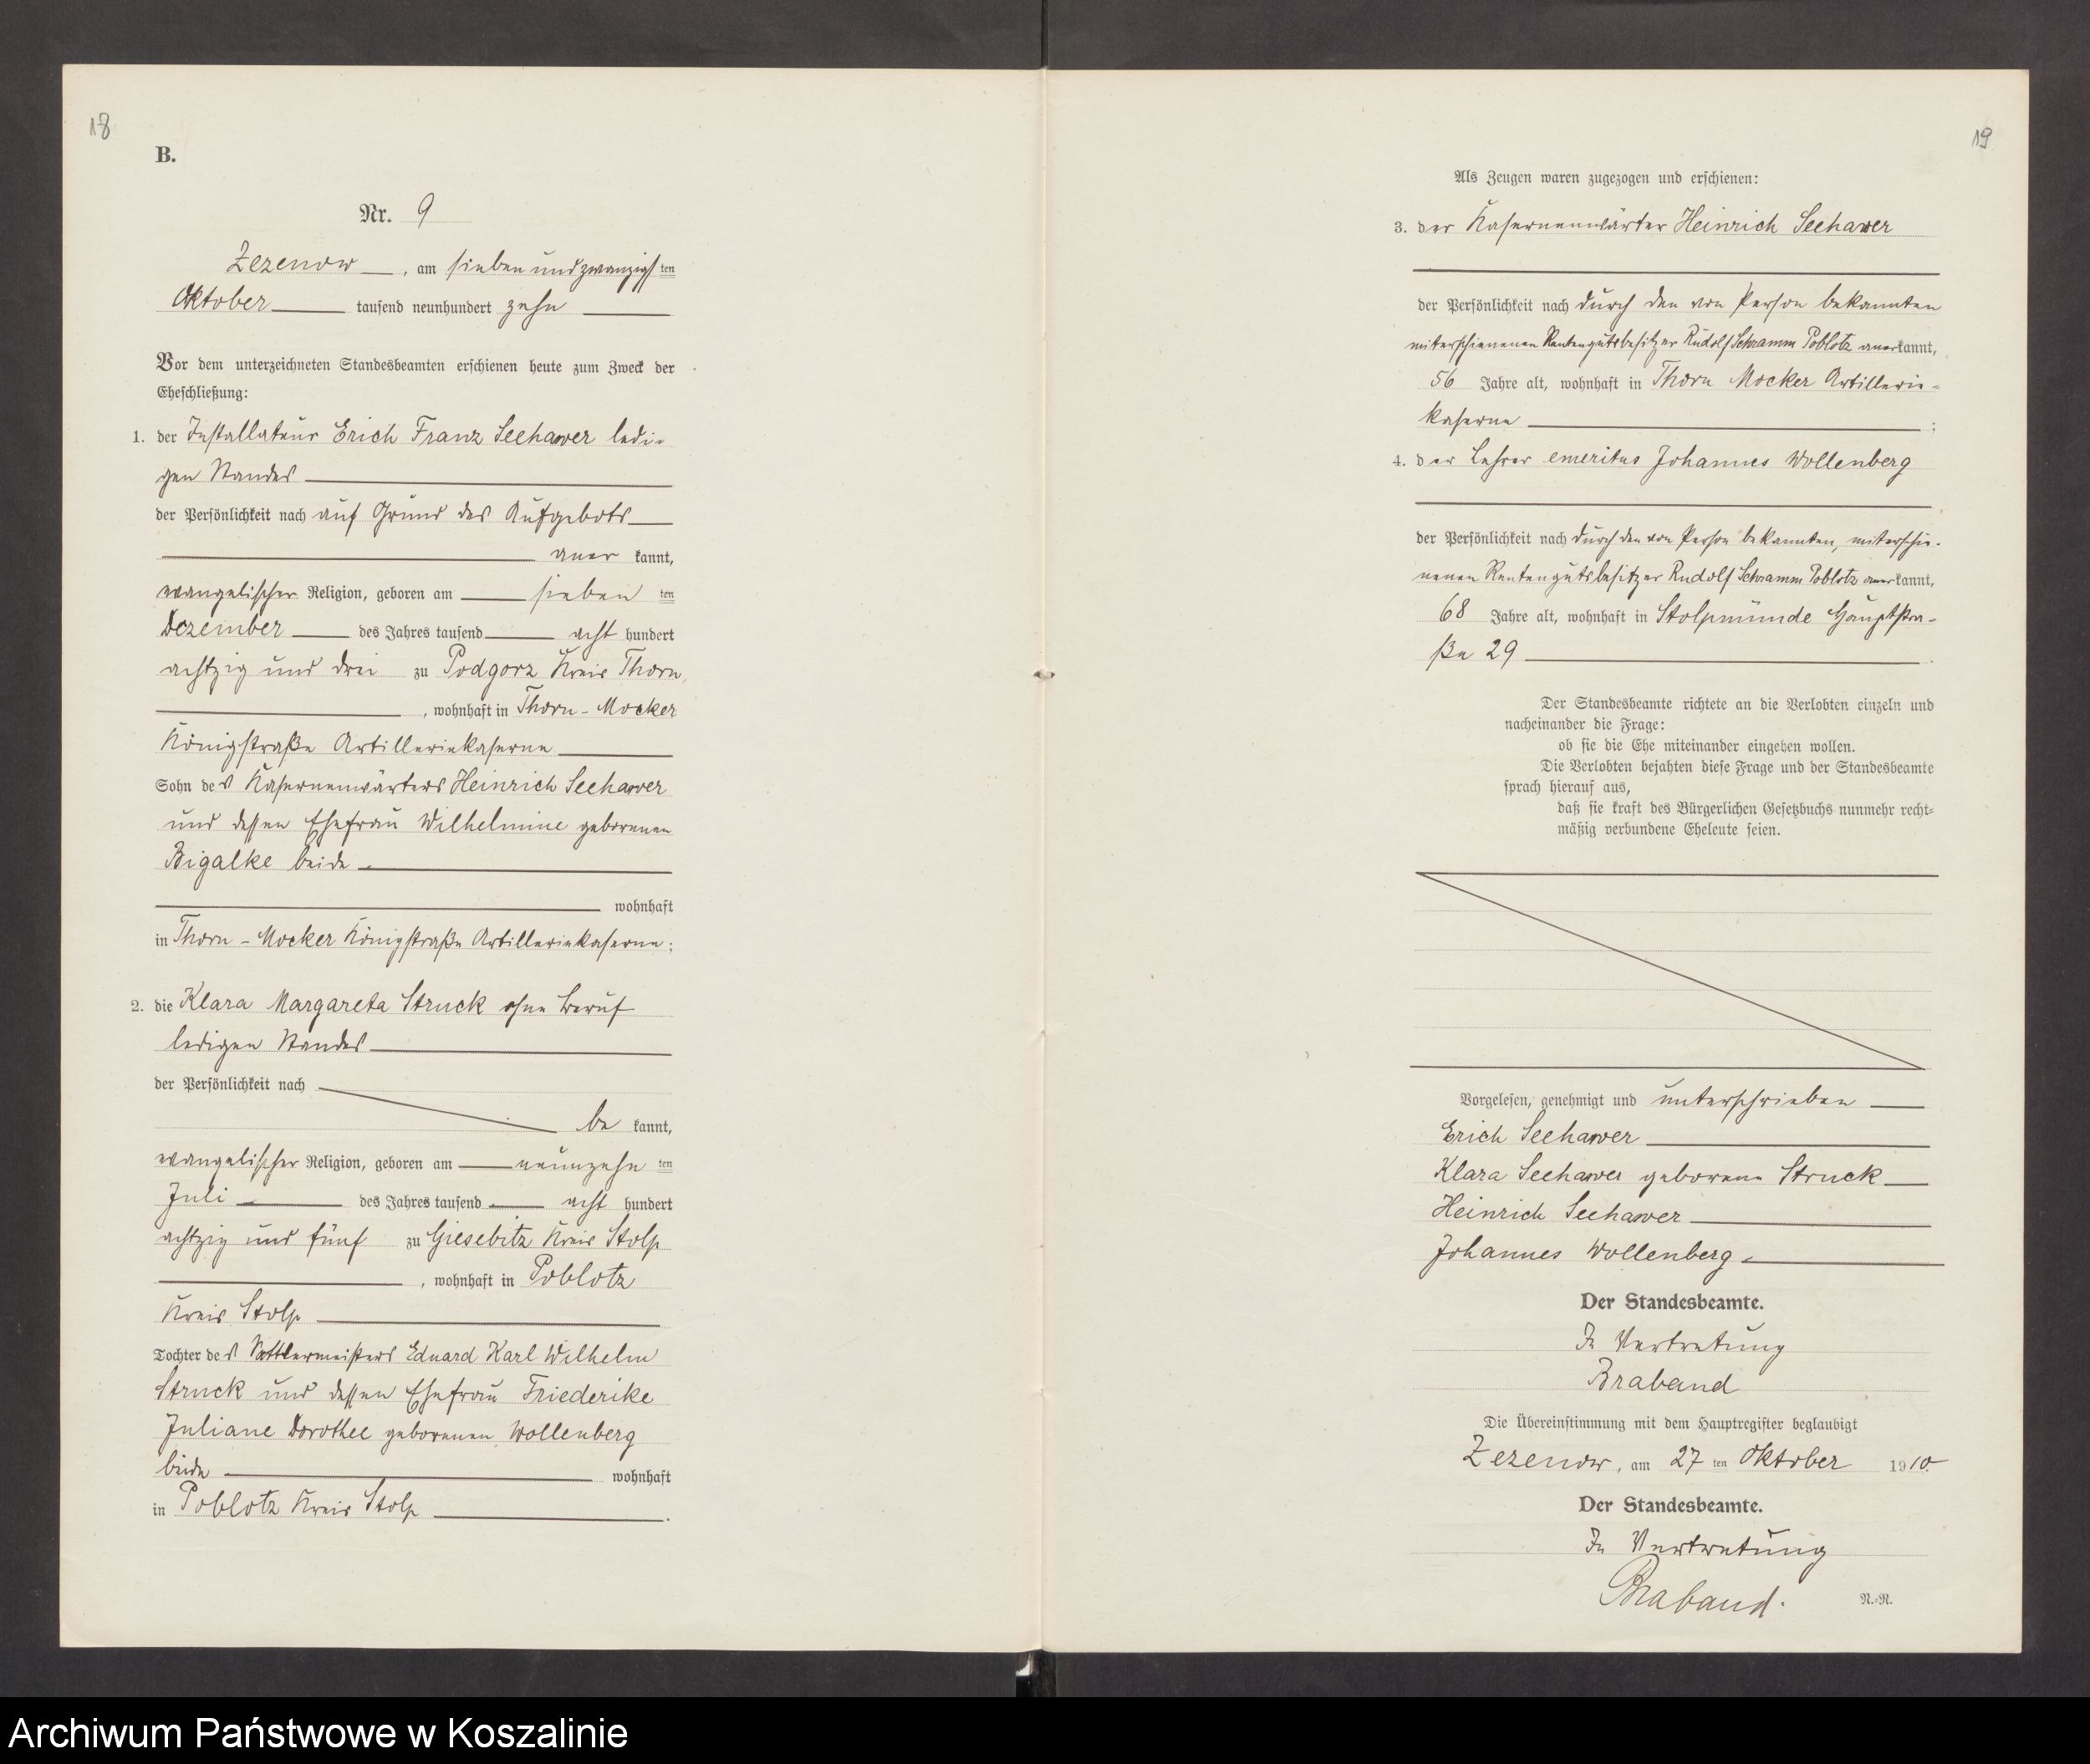 18
B.
Nr. 9
Zezenow, am sieben und zwanzigsten
Oktober tausend neunhundert zehn
Vor dem unterzeichneten Standesbeamten erschienen heute zum Zweck der
Eheschließung:
1. der Installateur Erich Franz Seehawer ledi-
gen Standes
der Persönlichkeit nach auf Grund des Aufgebots
aner kannt,
evangelischer Religion, geboren am sieben ten
Dezember des Jahres tausend acht hundert
achtzig und drei zu Podgorz Kreis Thorn
, wohnhaft in Thorn-Mocker
Königstraße Artilleriekaserne
Sohn des Kasernenwärters Heinrich Seehawer
und dessen Ehefrau Wilhelmine geborenen
Bigalke beide
wohnhaft
in Thorn-Mocker Königstraße Artilleriekaserne;
2. die Klara Margareta Struck ohne Beruf
ledigen Standes
der Persönlichkeit nach
be kannt,
evangelischer Religion, geboren am neunzehn ten
Juli des Jahres tausend acht hundert
achtzig und fünf zu Giesebitz Kreis Stolp
, wohnhaft in Poblotz
Kreis Stolp
Tochter des Sattlermeisters Eduard Karl Wilhelm
Struck und dessen Ehefrau Friederike
Juliane Dorothee geborenen Wollenberg
beide wohnhaft
in Poblotz Kreis Stolp.
19
Als Zeugen waren zugezogen und erschienen:
3. der Kasernenwärter Heinrich Seehawer
der Persönlichkeit nach durch den von Person bekannten
miterschienenen Rentengutsbesitzer Rudolf Schramm Poblotz anerkannt,
56 Jahre alt, wohnhaft in Thorn Mocker Artillerie-
kaserne;
4. der Lehrer emeritus Johannes Wollenberg
der Persönlichkeit nach durch den von Person bekannten, miterschie-
nenen Rentengutsbesitzer Rudolf Schramm Poblotz anerkannt,
68 Jahre alt, wohnhaft in Stolpmünde Hauptstra-
ße 29.
Der Standesbeamte richtete an die Verlobten einzeln und
nacheinander die Frage:
ob sie die Ehe miteinander eingehen wollen.
Die Verlobten bejahten diese Frage und der Standesbeamte
sprach hierauf aus,
daß sie kraft des Bürgerlichen Gesetzbuchs nunmehr recht-
mäßig verbundene Eheleute seien.
Vorgelesen, genehmigt und unterschrieben
Erich Seehawer
Klara Seehawer geborene Struck
Heinrich Seehawer
Johannes Wollenberg.
Der Standesbeamte.
In Vertretung
Braband
Die Übereinstimmung mit dem Hauptregister beglaubigt
Zezenow, am 27ten Oktober 1910
Der Standesbeamte.
In Vertretung
Braband.
N.-R.
Archiwum Państwowe w Koszalinie